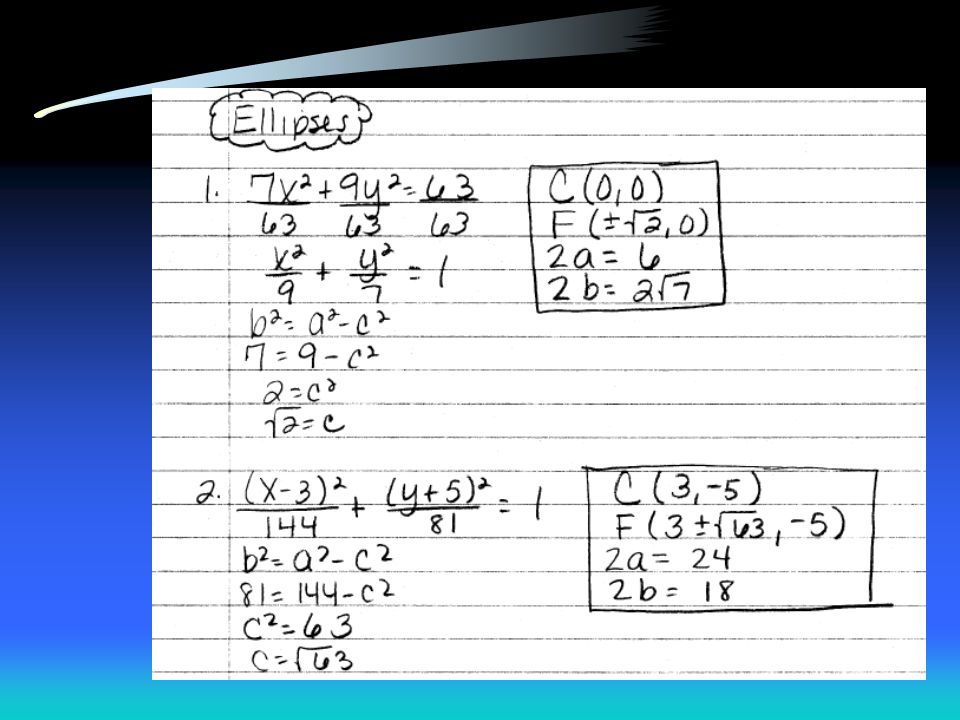 Ellipses
1. 7x²/63 + 9y²/63 = 63/63
x²/9 + y²/7 = 1
b² = a² - c²
7 = 9 - c²
2 = c²
√2 = c
C (0,0)
F (±√2, 0)
2a = 6
2b = 2√7
2. (x-3)²/144 + (y+5)²/81 = 1
b² = a² - c²
81 = 144 - c²
c² = 63
c = √63
C (3, -5)
F (3 ± √63, -5)
2a = 24
2b = 18